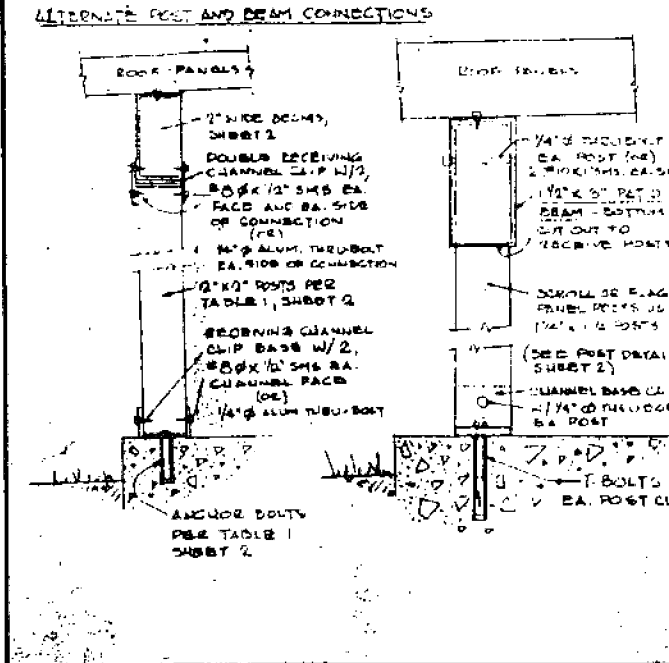 ALTERNATE POST AND BEAM CONNECTIONS
ROOF PANELS
2" WIDE BEAMS,
SHEET 2
DOUBLE RECEIVING
CHANNEL CLIP W/2,
#8Øx 1/2" SMS EA.
FACE AND EA. SIDE
OF CONNECTION
(OR)
1/4" Ø ALUM. THRU-BOLT
EA. SIDE OF CONNECTION
2"x2" POSTS PER
TABLE 1, SHEET 2
CHANNEL
CLIP BASE W/2,
#8Øx 1/2" SMS EA.
CHANNEL FACE
(OR)
1/4" Ø ALUM THRU-BOLT
ANCHOR BOLTS
PER TABLE 1
SHEET 2
ROOF PANELS
1/4" Ø THRU-BOLT
EA. POST (OR)
1 1/2" x 3" PATIO
BEAM - BOTTOM
CUT OUT TO
RECEIVE POSTS
SCROLL OR FLAG
PANEL POSTS
POSTS
(SEE POST DETAI
SHEET 2)
CHANNEL BASE CL
1/4" Ø
EA POST
T-BOLTS
EA. POST CL